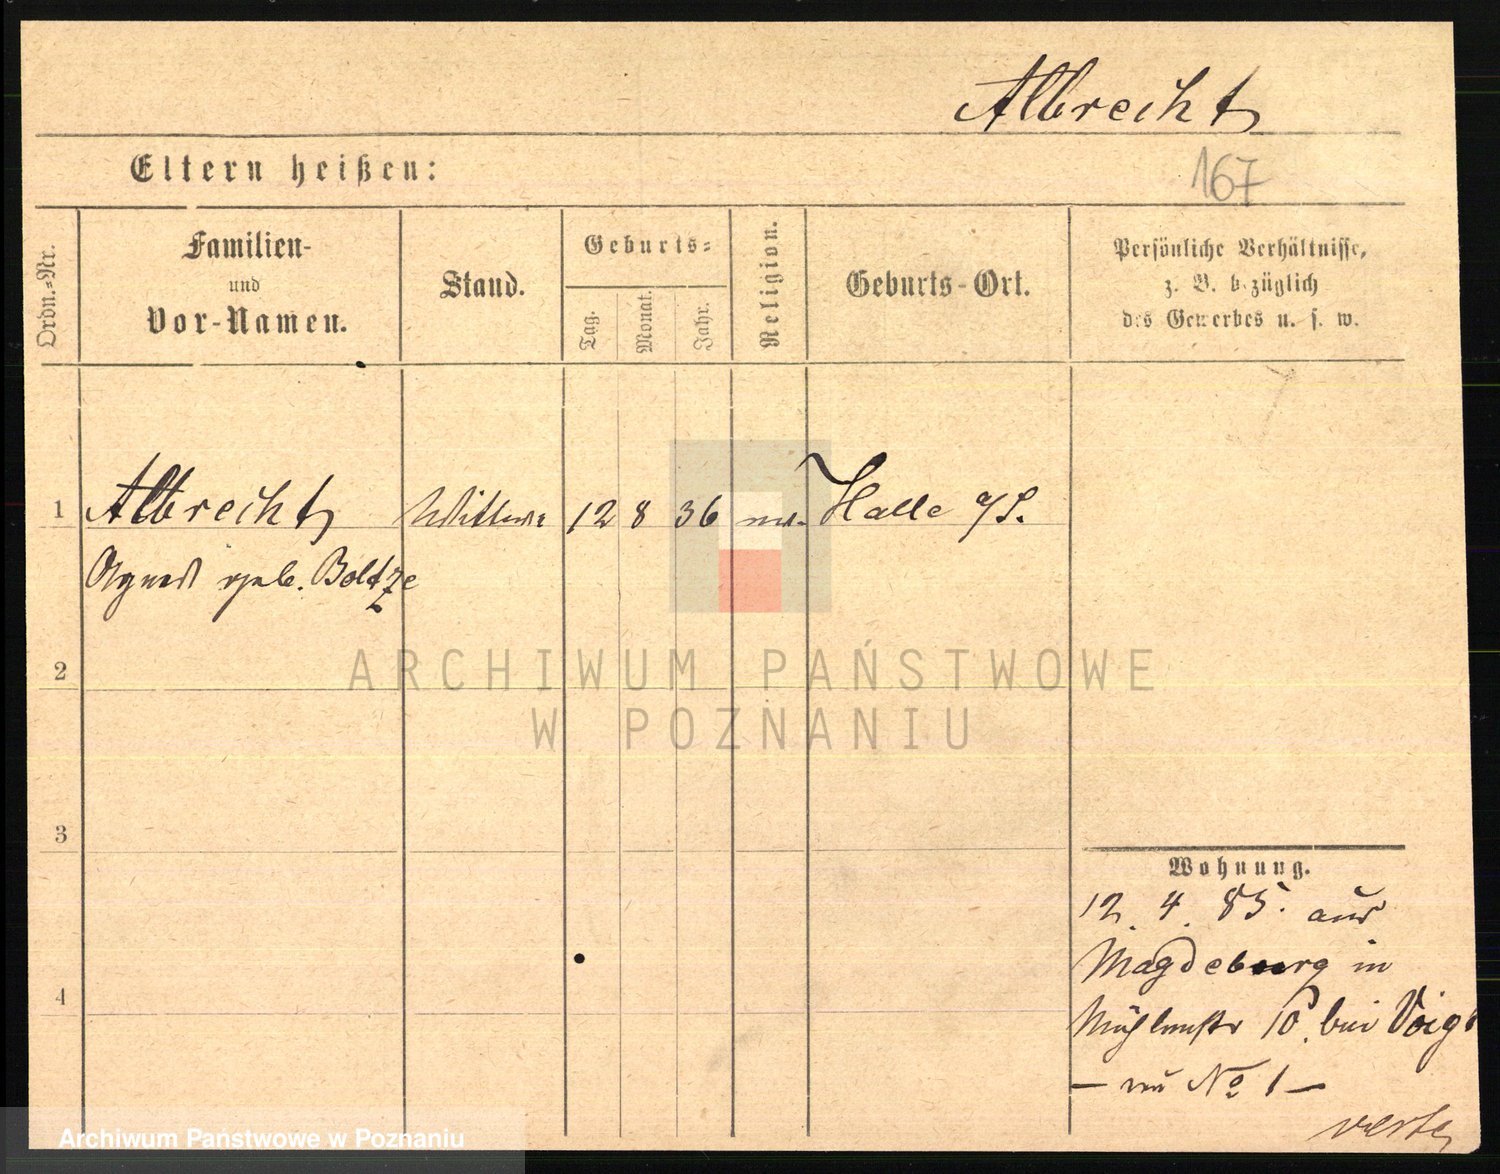 Albrecht
Eltern heißen:
167
Ordn.=Nr.
Familien-
und
Vor-Namen.
Stand.
Geburts=
Tag.
Monat.
Jahr.
Religion.
Geburts-Ort.
Persönliche Verhältnisse,
z. B. bezüglich
des Gewerbes u. s. w.
1 Albrecht Wittwe 12 8 36 Halle a/S.
Agnes geb. Boltze
2
ARCHIWUM PAŃSTWOWE
W POZNANIU
3
Wohnung.
12. 4. 85. aus
Magdeburg in
4
Mühlenstr 10. bei Voigt
— No 1 —
verte
Archiwum Państwowe w Poznaniu